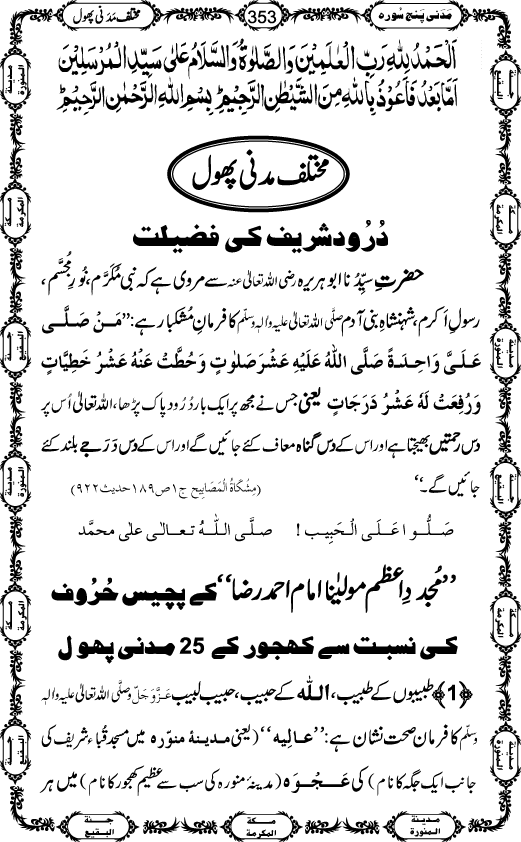 مَدَنی پَنج سُورہ
353
مختلف مَدَنی پھول
اَلْحَمْدُ لِلّٰہِ رَبِّ الْعٰلَمِیْنَ وَالصَّلٰوۃُ وَالسَّلَامُ عَلٰی سَیِّدِ الْمُرْسَلِیْنَ
اَمَّا بَعْدُ فَاَعُوْذُ بِاللّٰہِ مِنَ الشَّیْطٰنِ الرَّجِیْمِ ؕ بِسْمِ اللّٰہِ الرَّحْمٰنِ الرَّحِیْمِ ؕ
مختلف مدنی پھول
دُرُود شریف کی فضیلت
حضرتِ سیِّدُنا ابوہریرہ رضی اللہ تعالیٰ عنہ سے مروی ہے کہ نبی مُکَرَّم، نُورِ مُجَسَّم،
رسولِ اکرم، شہنشاہِ بنی آدم صلَّی اللہ تعالیٰ علیہ والہٖ وسلَّم کا فرمانِ مُشکبار ہے: ”مَنْ صَلّٰی
عَلَیَّ وَاحِدَۃً صَلَّی اللّٰہُ عَلَیْہِ عَشْرَ صَلَوٰتٍ وَحُطَّتْ عَنْہُ عَشْرُ خَطِیَّاتٍ
وَرُفِعَتْ لَہٗ عَشْرُ دَرَجَاتٍ یعنی جس نے مجھ پر ایک بار دُرُود پاک پڑھا، اللہ تعالیٰ اُس پر
دس رحمتیں بھیجتا ہے اور اس کے دس گناہ معاف کئے جائیں گے اور اس کے دس دَرَجے بلند کئے
جائیں گے۔“ (مِشکاۃُ الْمَصَابِیح ج۱ ص۱۸۹ حدیث۹۲۲)
صَلُّوا عَلَی الْحَبِیب ! صلَّی اللّٰہُ تعالٰی علٰی محمَّد
”مُجدِّدِ اعظم مولیٰنا امام احمد رضا“ کے پچیس حُرُوف
کی نسبت سے کھجور کے 25 مدنی پھول
﴿1﴾ طبیبوں کے طبیب، اللّٰہ کے حبیب، حبیبِ لبیب عَزَّوَجَلَّ وصلَّی اللہ تعالیٰ علیہ والہٖ
وسلَّم کا فرمانِ صحت نشان ہے: ”عالیہ“ (یعنی مدینۂ منوّرہ میں مسجدِ قُباء شریف کی
جانب ایک جگہ کا نام) کی عَجوَہ (مدینۂ منورہ کی سب سے عظیم کھجور کا نام) میں ہر
مدینۃ المنورۃ
مکۃ المکرمۃ
جنۃ البقیع
مدینۃ المنورۃ
مکۃ المکرمۃ
جنۃ البقیع
جنۃ البقیع
مکۃ المکرمۃ
مدینۃ المنورۃ
جنۃ البقیع
مکۃ المکرمۃ
مدینۃ المنورۃ
جنۃ البقیع
مکۃ المکرمۃ
مدینۃ المنورۃ